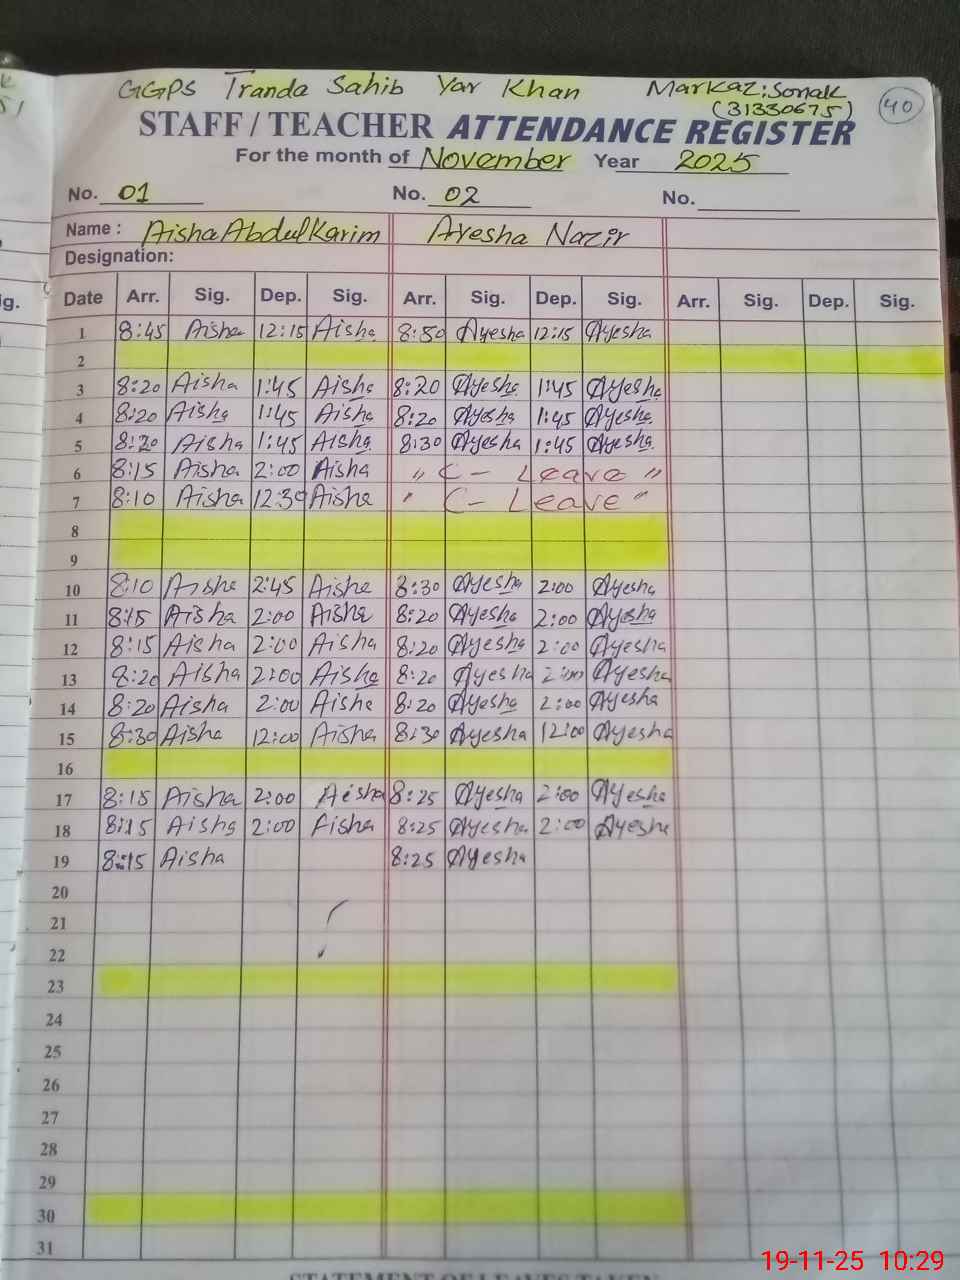 GGPS Tranda Sahib Yar Khan Markaz: Sonak
(31330675) 40
STAFF / TEACHER ATTENDANCE REGISTER
For the month of November Year 2025
No. 01 No. 02 No.
Name : Aisha Abdul Karim Ayesha Nazir
Designation:
Date Arr. Sig. Dep. Sig. Arr. Sig. Dep. Sig. Arr. Sig. Dep. Sig.
1 8:45 Aisha 12:15 Aisha 8:50 Ayesha 12:15 Ayesha
2
3 8:20 Aisha 1:45 Aisha 8:20 Ayesha 1:45 Ayesha
4 8:20 Aisha 1:45 Aisha 8:20 Ayesha 1:45 Ayesha
5 8:20 Aisha 1:45 Aisha 8:30 Ayesha 1:45 Ayesha
6 8:15 Aisha 2:00 Aisha " C - Leave "
7 8:10 Aisha 12:30 Aisha " C - Leave "
8
9
10 8:10 Aisha 2:45 Aisha 8:30 Ayesha 2:00 Ayesha
11 8:15 Aisha 2:00 Aisha 8:20 Ayesha 2:00 Ayesha
12 8:15 Aisha 2:00 Aisha 8:20 Ayesha 2:00 Ayesha
13 8:20 Aisha 2:00 Aisha 8:20 Ayesha 2:00 Ayesha
14 8:20 Aisha 2:00 Aisha 8:20 Ayesha 2:00 Ayesha
15 8:30 Aisha 12:00 Aisha 8:30 Ayesha 12:00 Ayesha
16
17 8:15 Aisha 2:00 Aisha 8:25 Ayesha 2:00 Ayesha
18 8:15 Aisha 2:00 Aisha 8:25 Ayesha 2:00 Ayesha
19 8:15 Aisha 8:25 Ayesha
20
21
22
23
24
25
26
27
28
29
30
31
STATEMENT OF LEAVES TAKEN
19-11-25 10:29